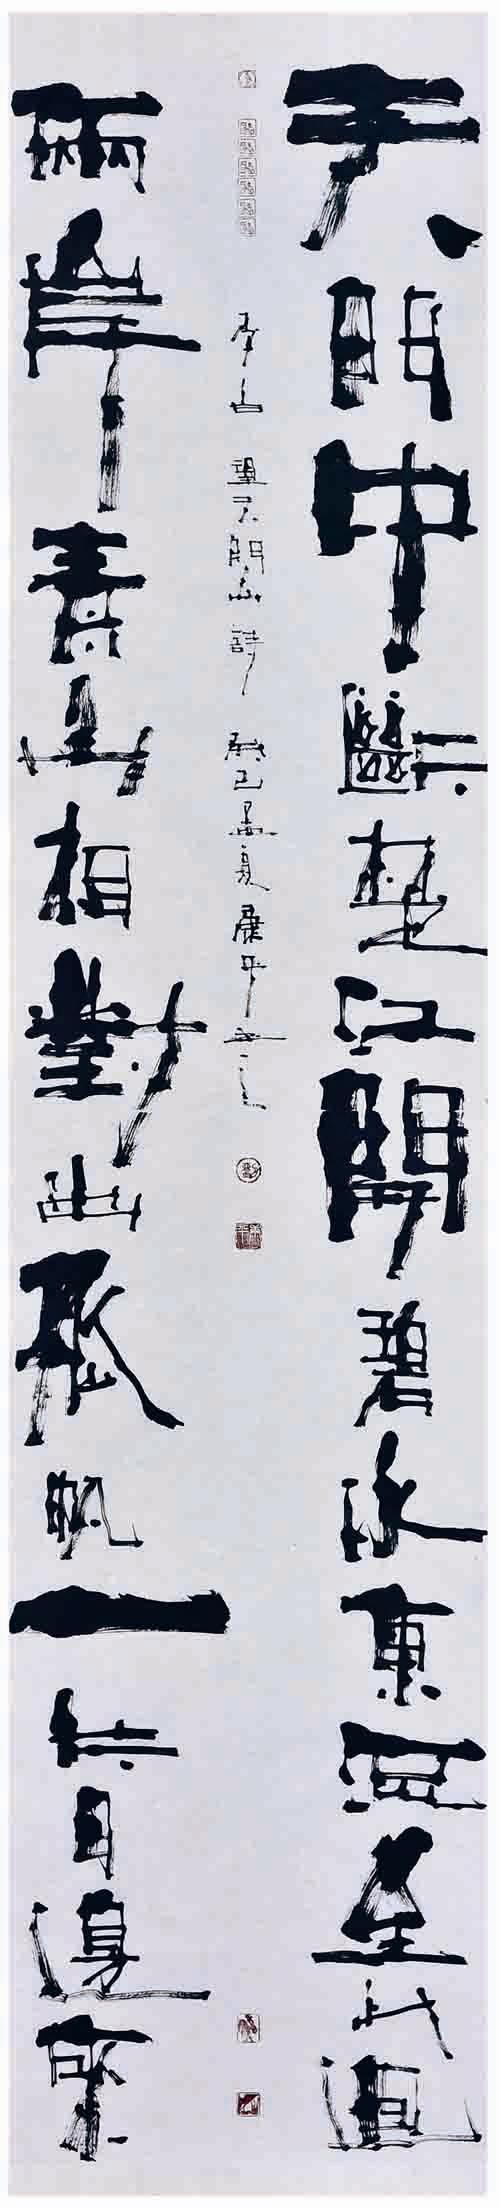 天門中斷楚江開碧水東流至此迴
兩岸青山相對出孤帆一片日邊來
李白望天門山詩癸巳孟夏康平